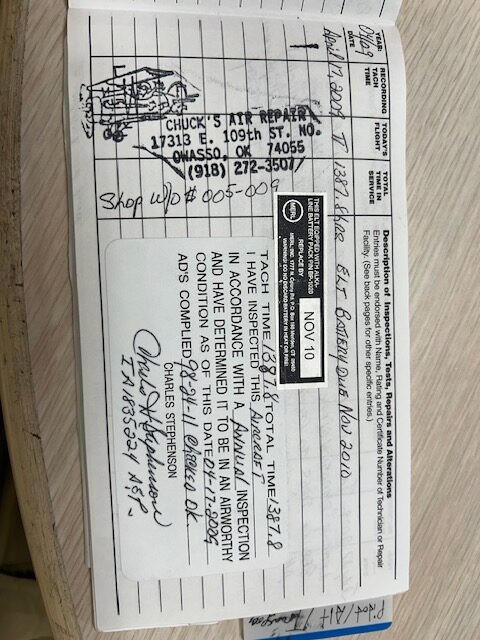 YEAR:
04/09
DATE
RECORDING
TACH
TIME
TODAY'S
FLIGHT
TOTAL
TIME IN
SERVICE
Description of Inspections, Tests, Repairs and Alterations
Entries must be endorsed with Name, Rating and Certificate Number of Technician or Repair
Facility. (See back pages for other specific entries.)
April 17, 2009 TT 1387.8 hrs ELT BATTERY DUE NOV 2010
CHUCK'S AIR REPAIR
17313 E. 109th ST. NO.
OWASSO, OK 74055
(918) 272-3507
Shop W/O # 005-009
THIS ELT EQIPPED WITH ALKA-
LINE BATTERY PACK P/N BP-1020
MERL
REPLACE BY
NOV 10
TACH TIME 1387.8 TOTAL TIME 1387.8
I HAVE INSPECTED THIS AIRCRAFT
IN ACCORDANCE WITH A ANNUAL INSPECTION
AND HAVE DETERMINED IT TO BE IN AN AIRWORTHY
CONDITION AS OF THIS DATE 04-17-2009
AD'S COMPLIED 98-21-11 Checked OK
CHARLES STEPHENSON
Charles H Stephenson
IA1835224 A&P